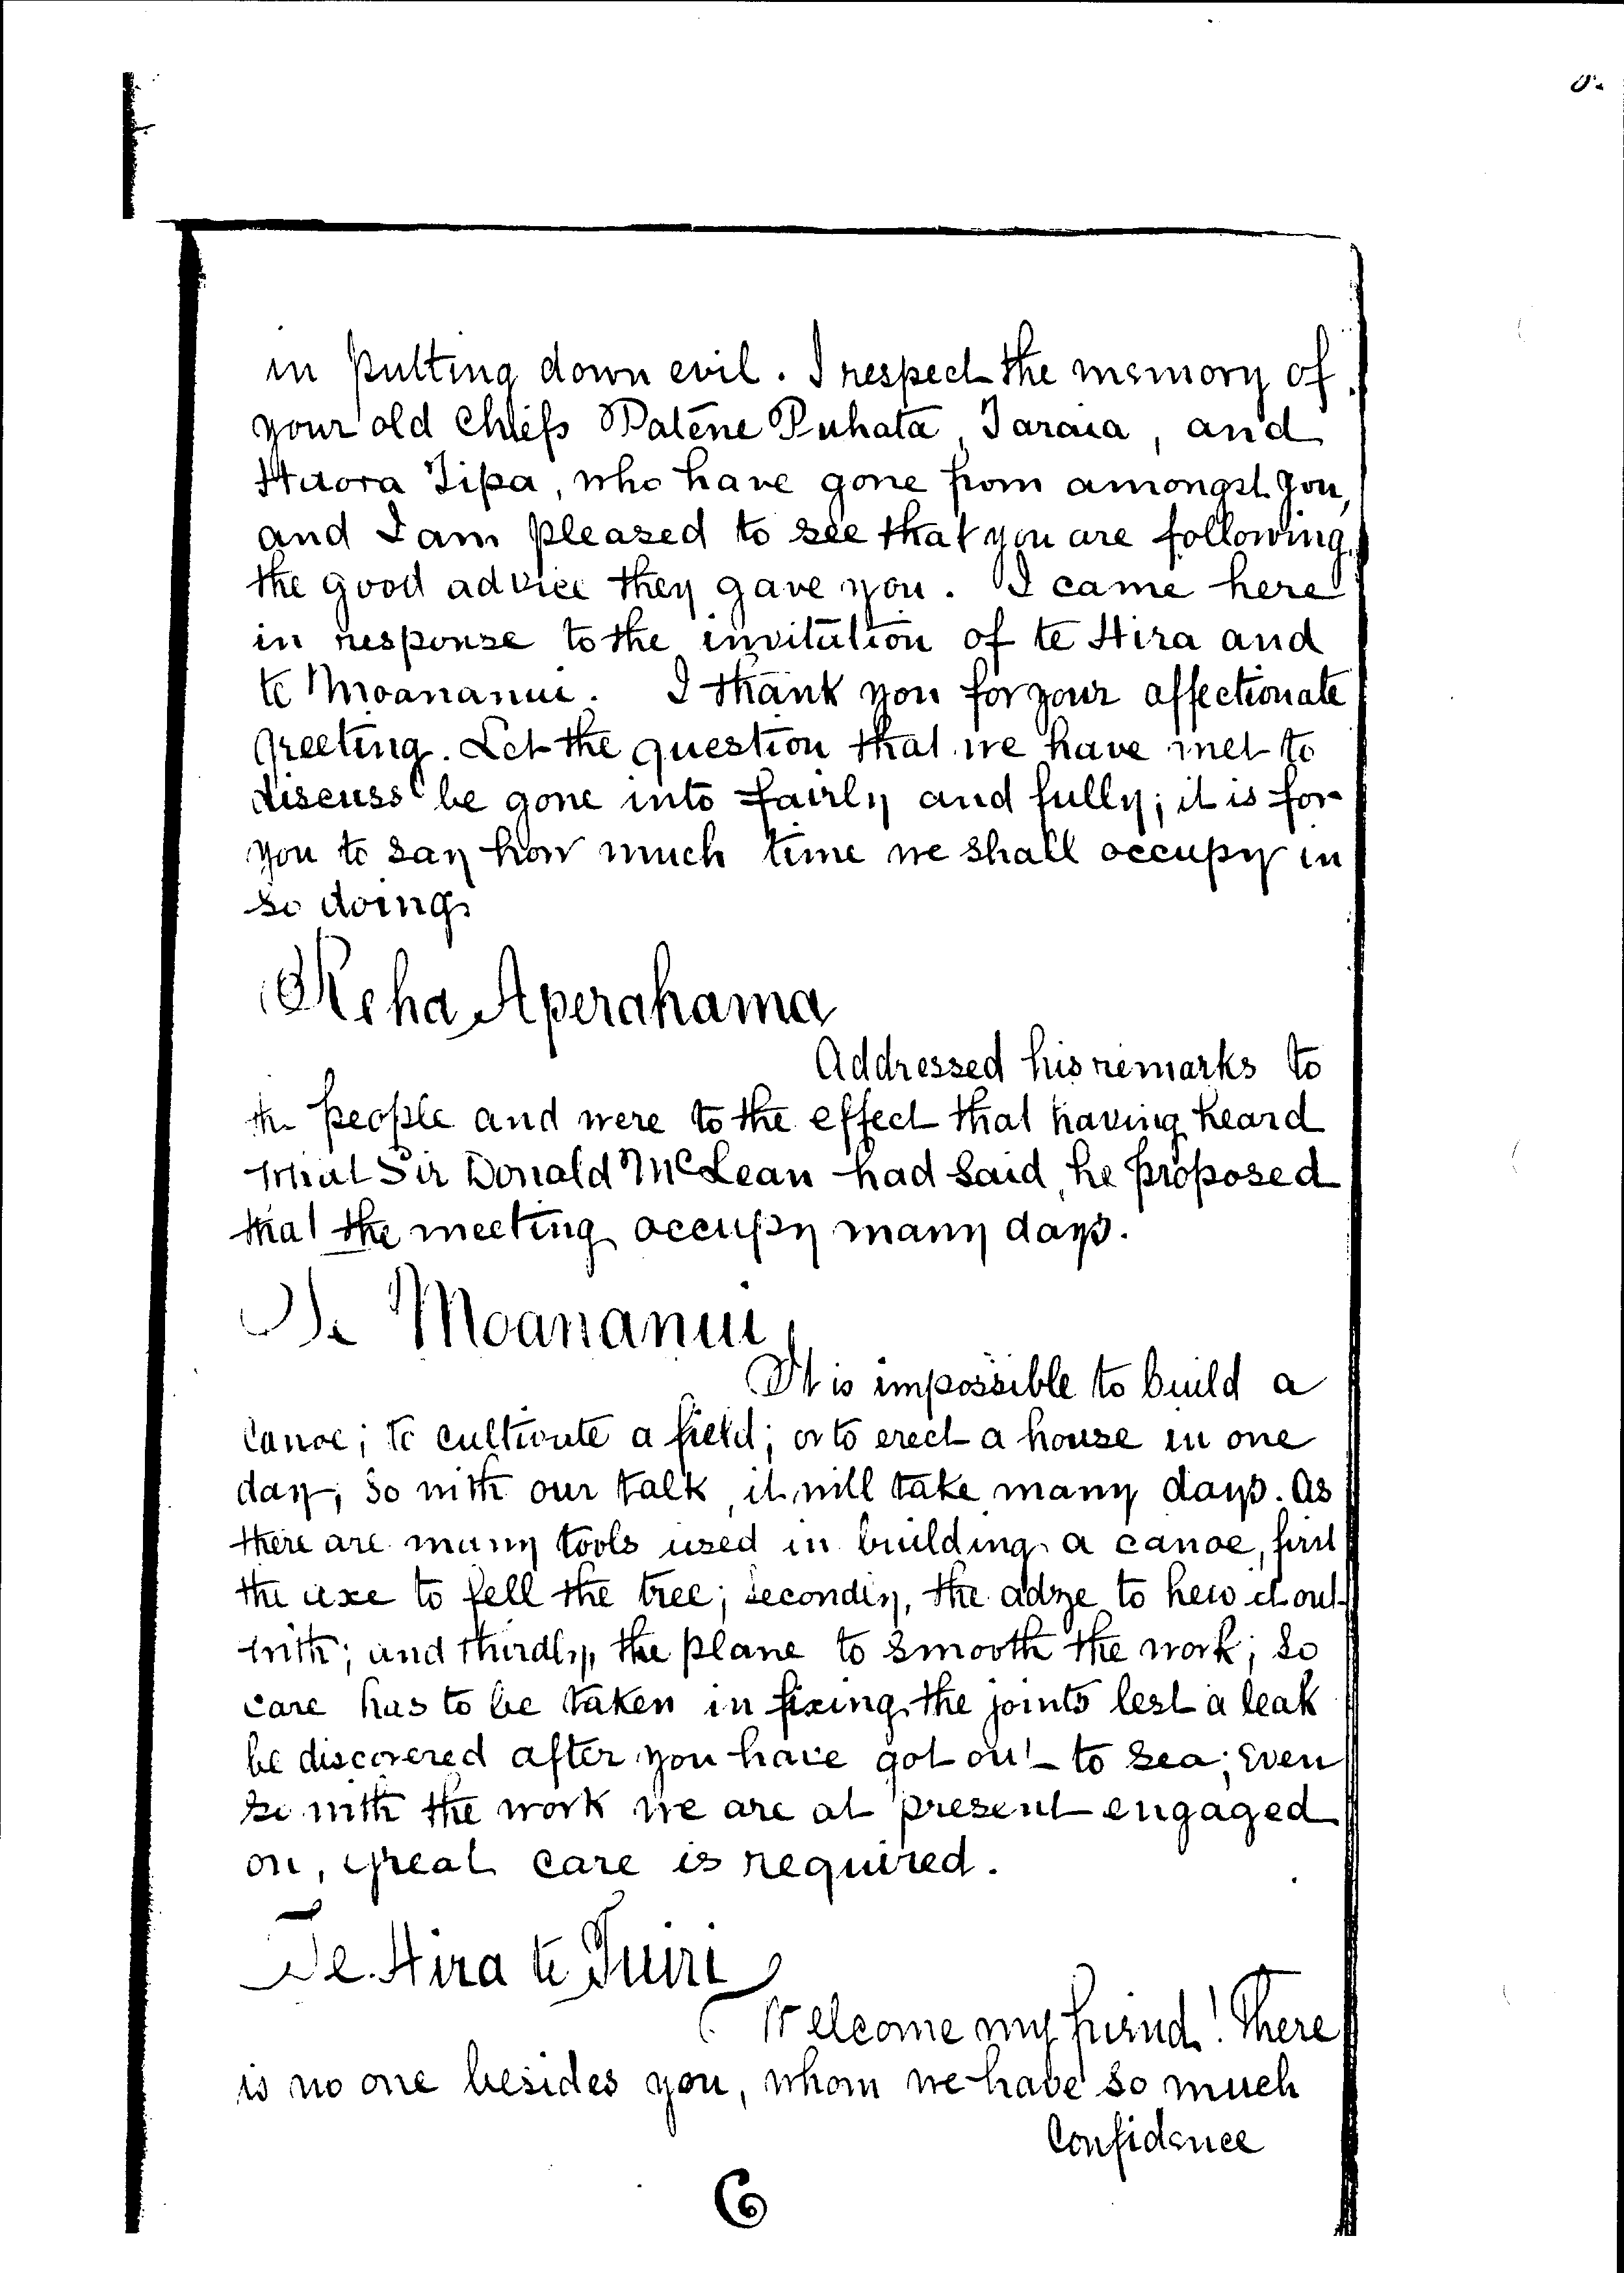 in putting down evil. I respect the memory of
your old Chiefs Patene Puhata, Taraia, and
Haora Tipa, who have gone from amongst you,
and I am pleased to see that you are following
the good advice they gave you. I came here
in response to the invitation of te Hira and
te Moananui. I thank you for your affectionate
greeting. Let the question that we have met to
discuss be gone into fairly and fully; it is for
you to say how much time we shall occupy in
so doing.
Reha Aperahama
Addressed his remarks to
the people and were to the effect that having heard
what Sir Donald McLean had said, he proposed
that the meeting occupy many days.
Te Moananui,
It is impossible to build a
Canoe; to cultivate a field; or to erect a house in one
day; so with our talk, it will take many days. As
there are many tools used in building a canoe, first
the axe to fell the tree; secondly, the adze to hew it out
with; and thirdly, the plane to smooth the work; so
care has to be taken in fixing the joints lest a leak
be discovered after you have got out to sea; Even
so with the work we are at present engaged
on, great care is required.
Te Hira te Tuiri
Welcome my friend! There
is no one besides you, whom we have so much
Confidence
6